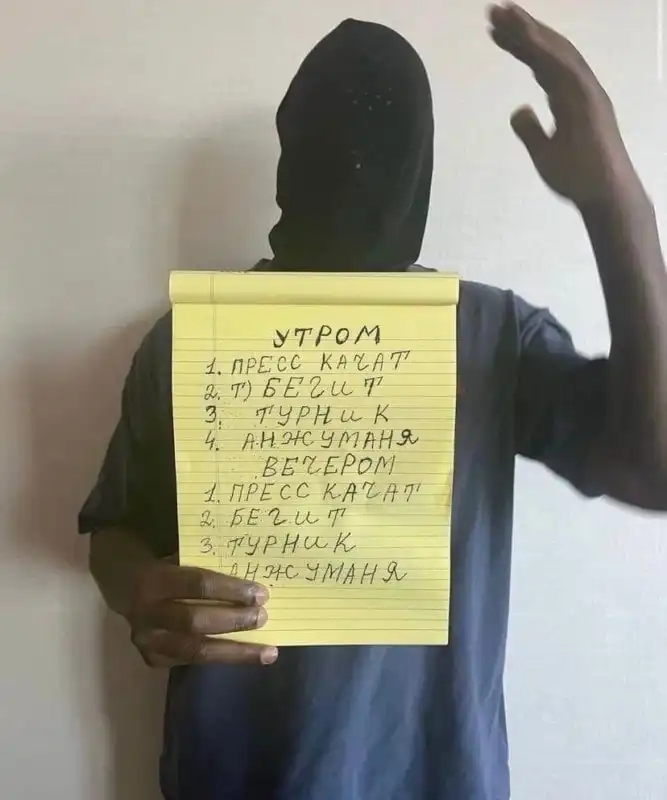 УТРОМ
1. ПРЕСС КАЧАТ
2. Т) БЕГИТ
3. ТУРНИК
4. АНЖУМАНЯ
ВЕЧЕРОМ
1. ПРЕСС КАЧАТ
2. БЕГИТ
3. ТУРНИК
АНЖУМАНЯ